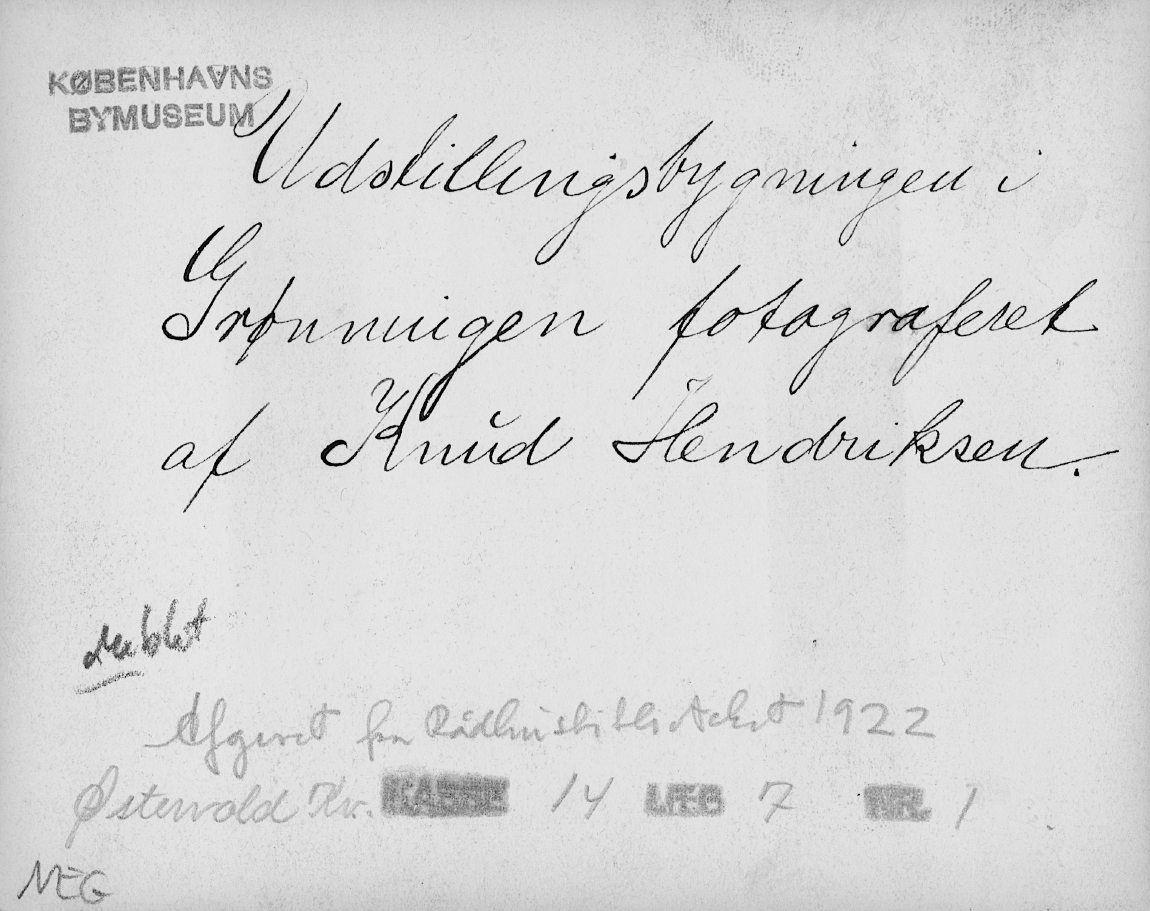 KØBENHAVNS
BYMUSEUM
Udstillingsbygningen i
Grønningen fotograferet
af Knud Hendriksen.
Afgivet fra Rådhusbiblioteket 1922
Østervold Kv. KASSE 14 LÆG 7 NR. 1
NEG